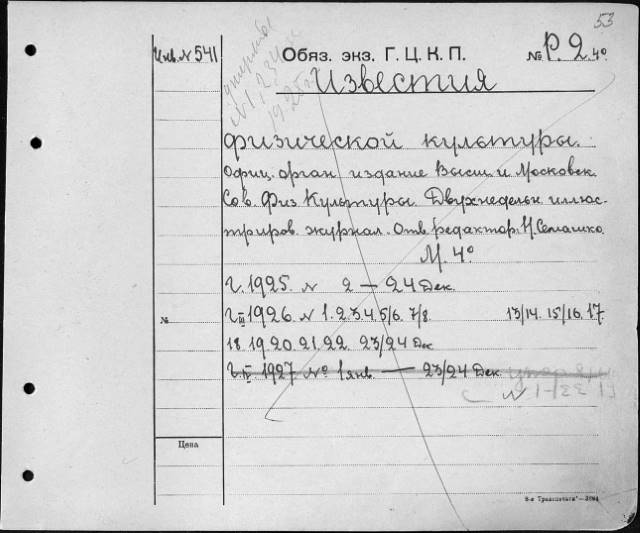 53
Инв. № 541
Обяз. экз. Г. Ц. К. П.
№ Р. 2. 4°
Известия
физической культуры.
Офиц. орган издание Высш. и Московск.
Сов. Физ. Культуры. Двухнедельн. иллюс-
триров. журнал. Отв. редактор: Н. Семашко.
М. 4°
Г. 1925. № 2 — 24 Дек.
№
Г. III 1926. № 1. 2. 3. 4. 5/6. 7/8. 13/14. 15/16. 17.
18. 19. 20. 21. 22. 23/24 Дек
Г. IV 1927. № 1 янв. — 23/24 Дек.
Цена